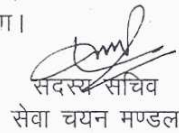 ा।
सदस्य सचिव
सेवा चयन मण्डल